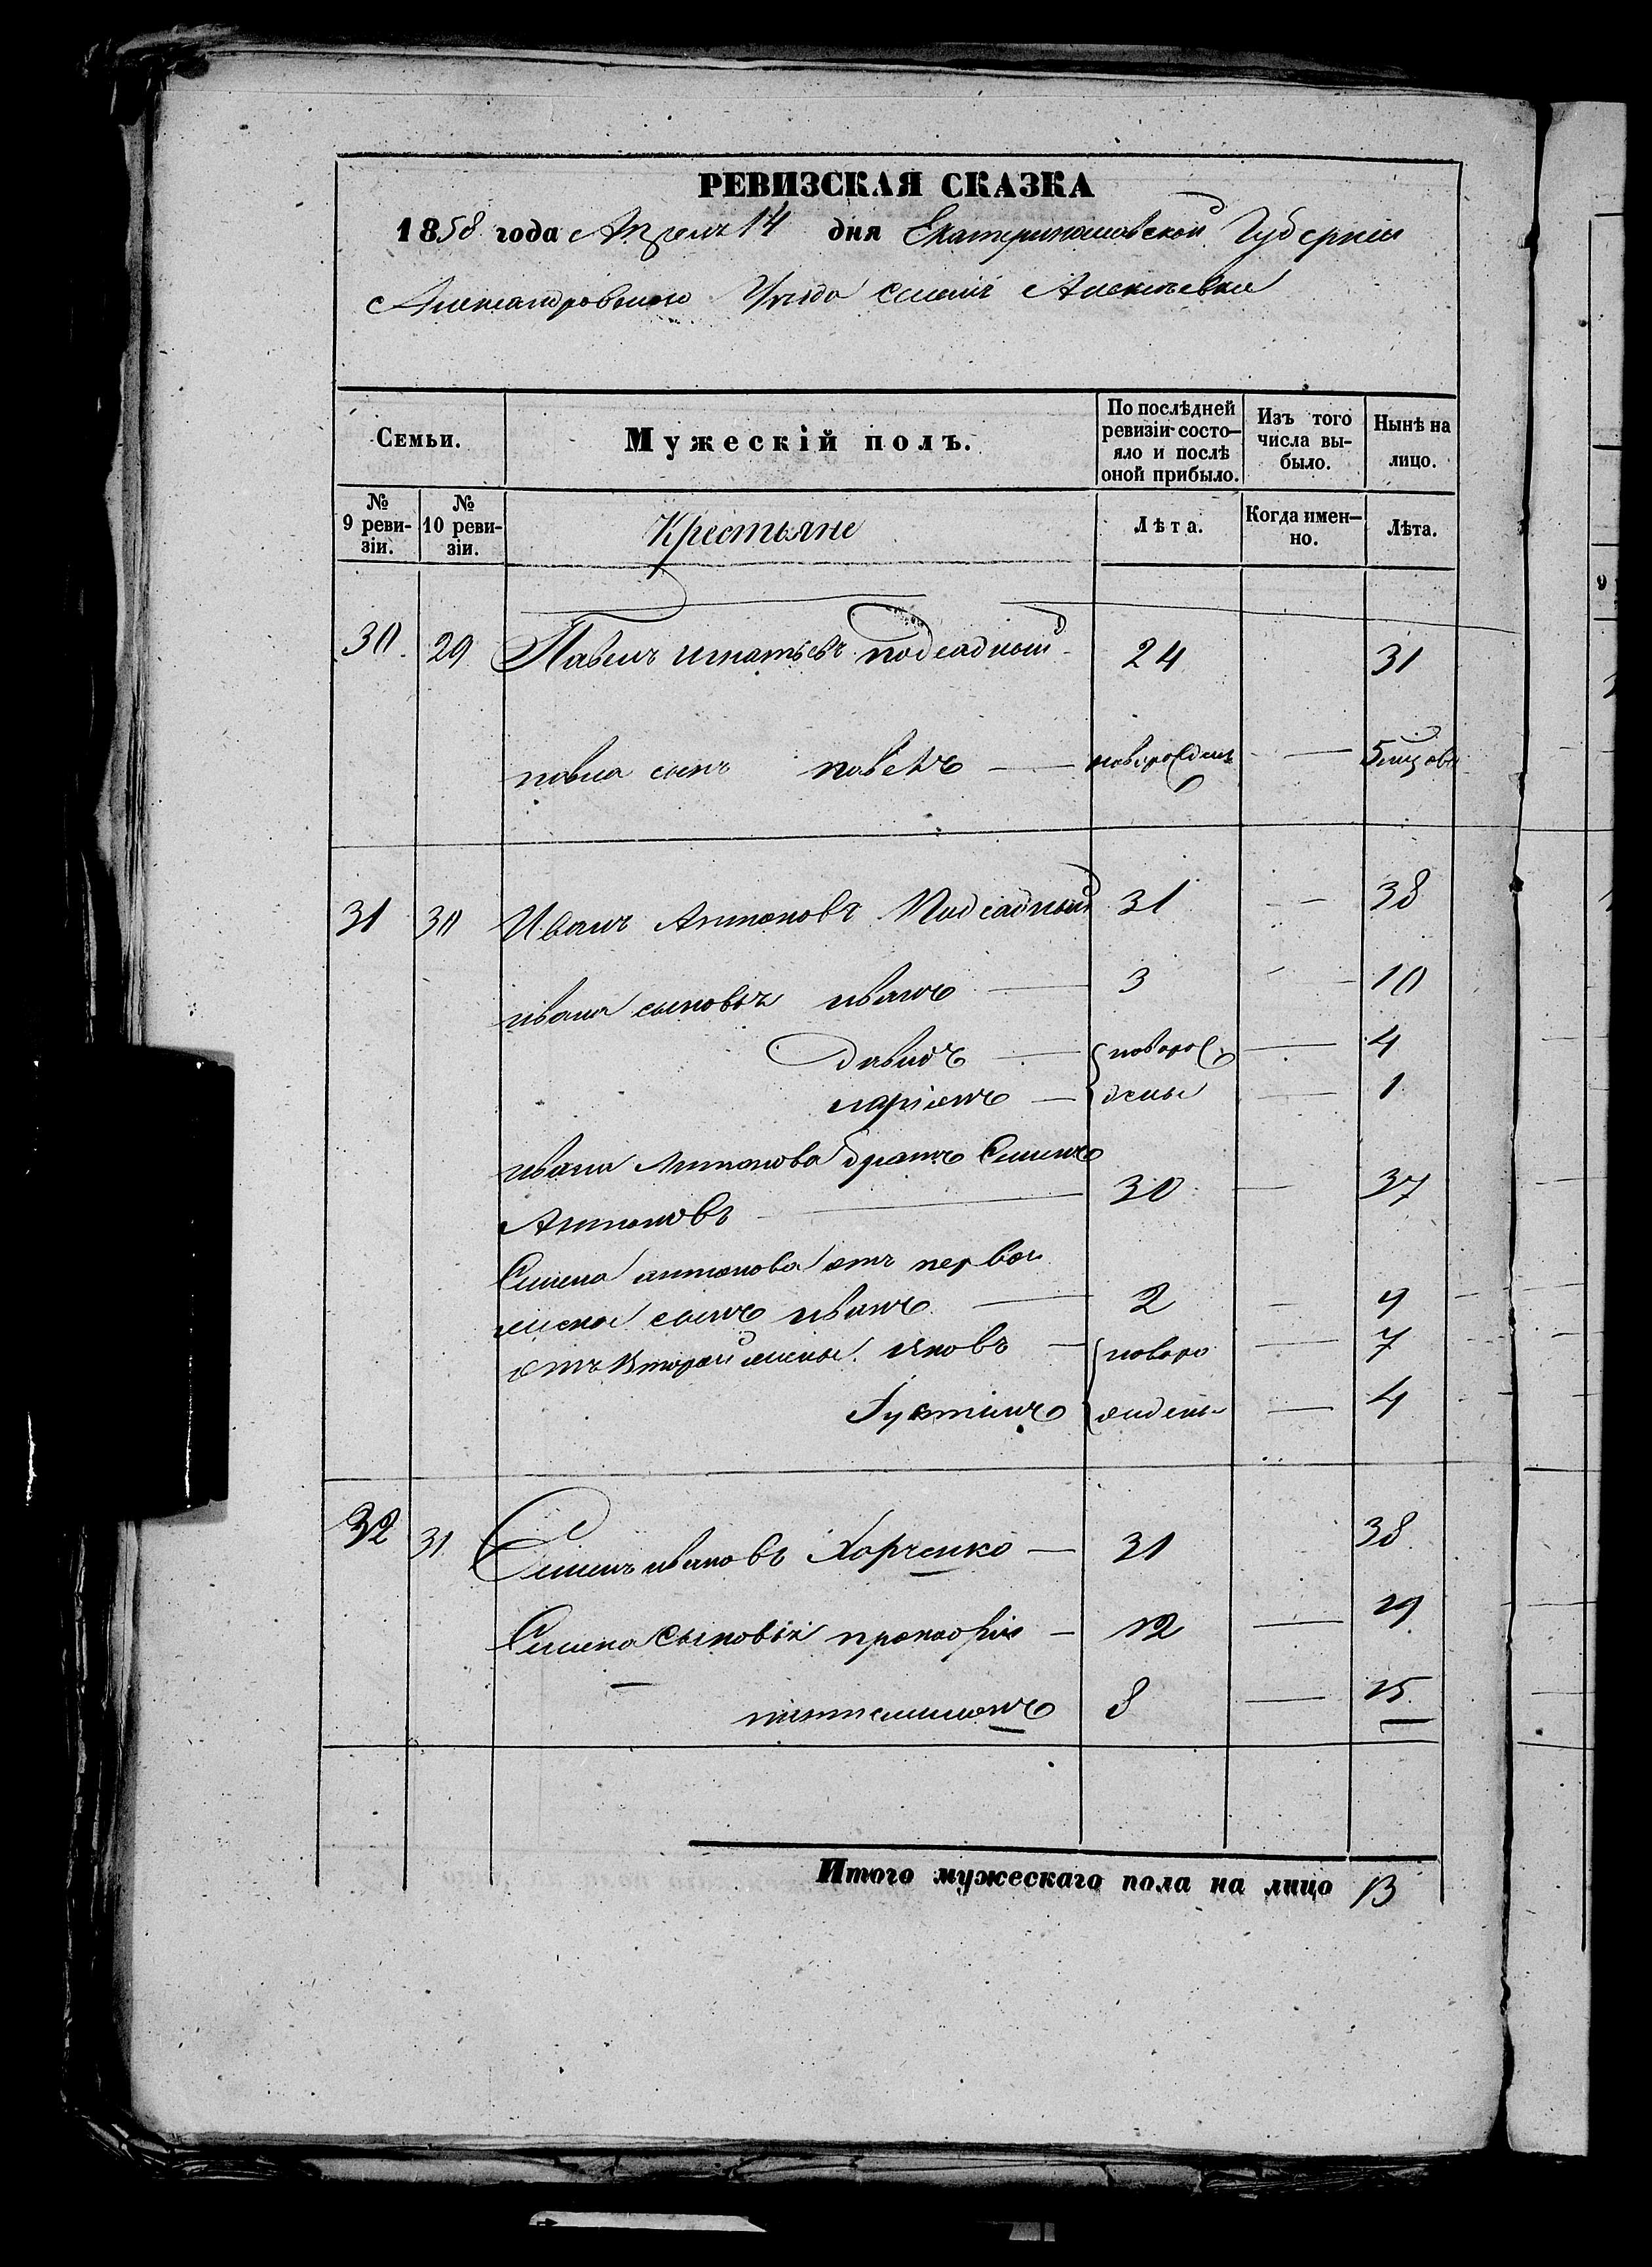 РЕВИЗСКАЯ СКАЗКА
1858 года Апреля 14 дня Екатеринославской Губернiи
Александровского Уезда Алексеевки
Семьи. Мужескiй полъ. По послѣдней ревизiи состояло и послѣ оной прибыло. Изъ того числа выбыло. Нынѣ на лицо.
№ 9 ревизiи. № 10 ревизiи. Крестьяне Лѣта. Когда именно. Лѣта.
30. 29 Павелъ игнатьевъ подсадный 24 31
павла сынъ павелъ новорожденъ 5 мѣсяцовъ
31 30 Иванъ Антоновъ Подсадный 31 38
ивана сыновья иванъ 3 10
давидъ новорож 4
ларiонъ дены 1
ивана Антонова братъ Семенъ
Антоновъ 30 37
Семена антонова отъ первой
жены сынъ иванъ 2 9
отъ Второй жены яковъ новоро 7
Iустинъ жидены 4
32 31 Семенъ ивановъ Харченко 31 38
Семена Сыновья прокофiй 12 19
пантелимонъ 8 15
Итого мужескаго пола на лицо 13